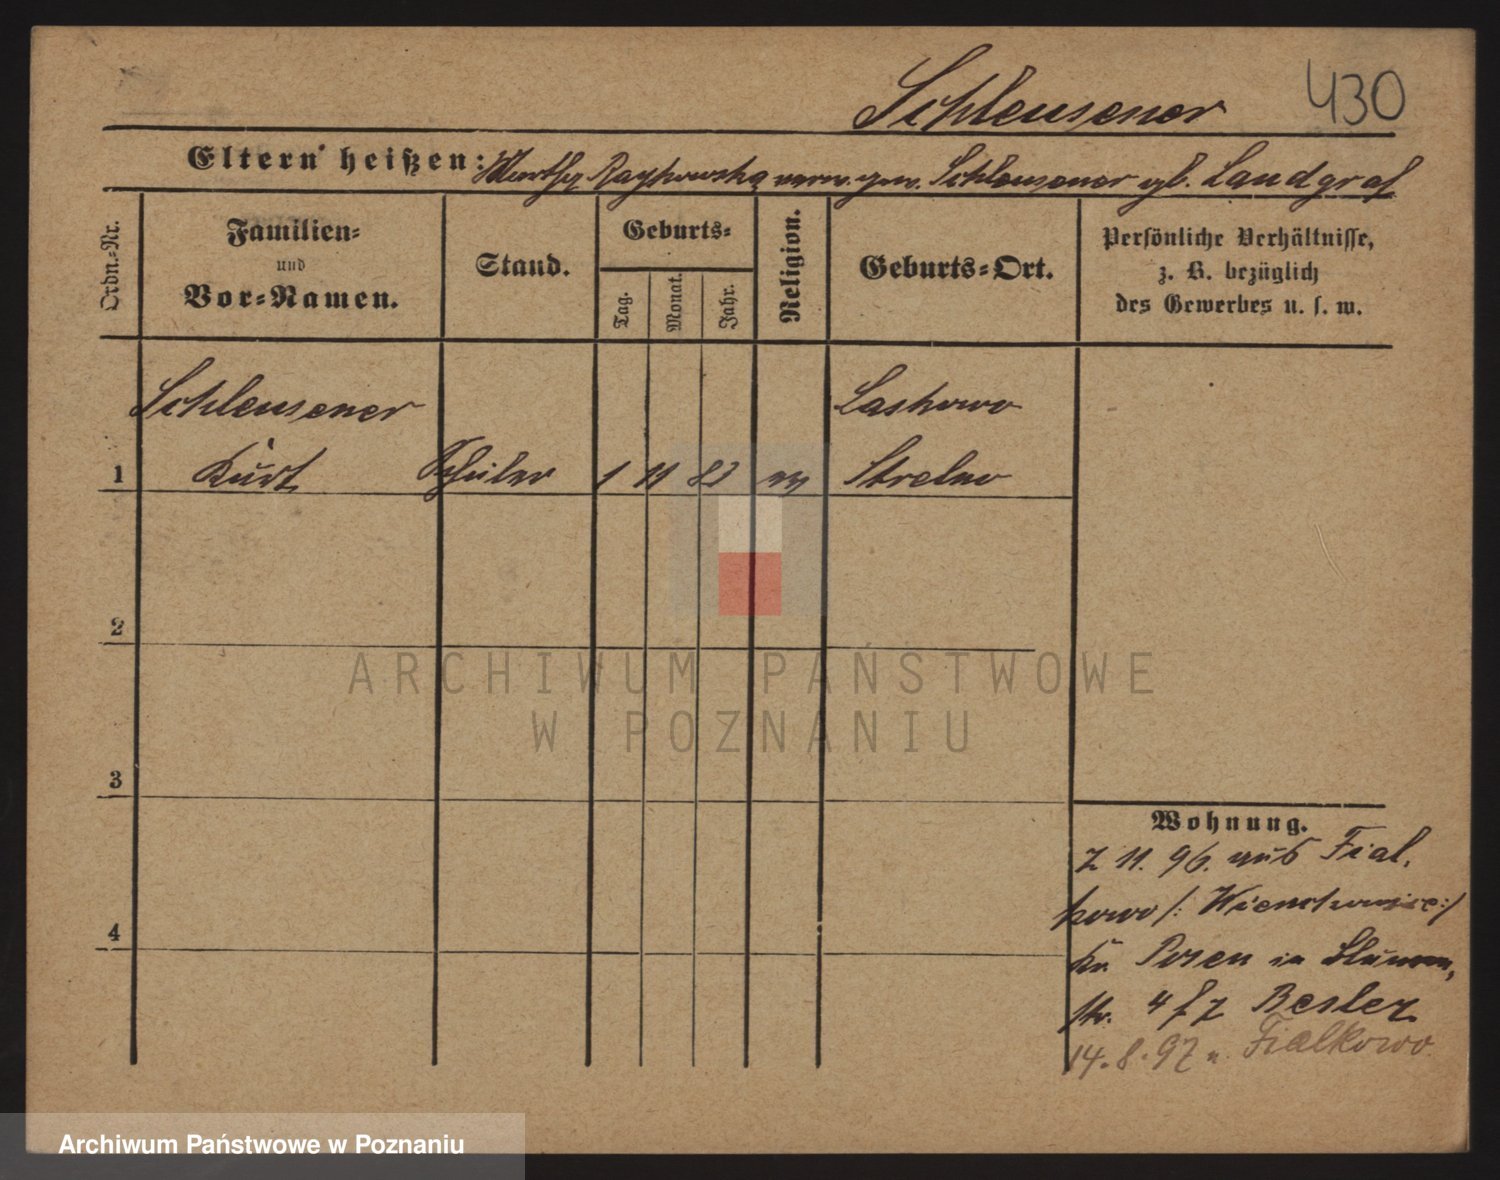 Schleusener 430
Eltern heißen: Raykowska verw. gew. Schleusener gb. Landgraf
Ordn.-Nr.
Familien-
und
Vor-Namen.
Stand.
Geburts-
Tag.
Monat.
Jahr.
Religion.
Geburts-Ort.
Persönliche Verhältnisse,
z. B. bezüglich
des Gewerbes u. s. w.
Schleusener
Laskowo
1 Kurt Schüler 1 11 83 ev Strelno
2
3
4
Wohnung.
7 11. 96. aus Fial,
kowo /: :/
Kr. Posen in Blumen,
str. 4 f z Besler
14. 8. 97 n. Fialkowo
ARCHIWUM PAŃSTWOWE
W POZNANIU
Archiwum Państwowe w Poznaniu